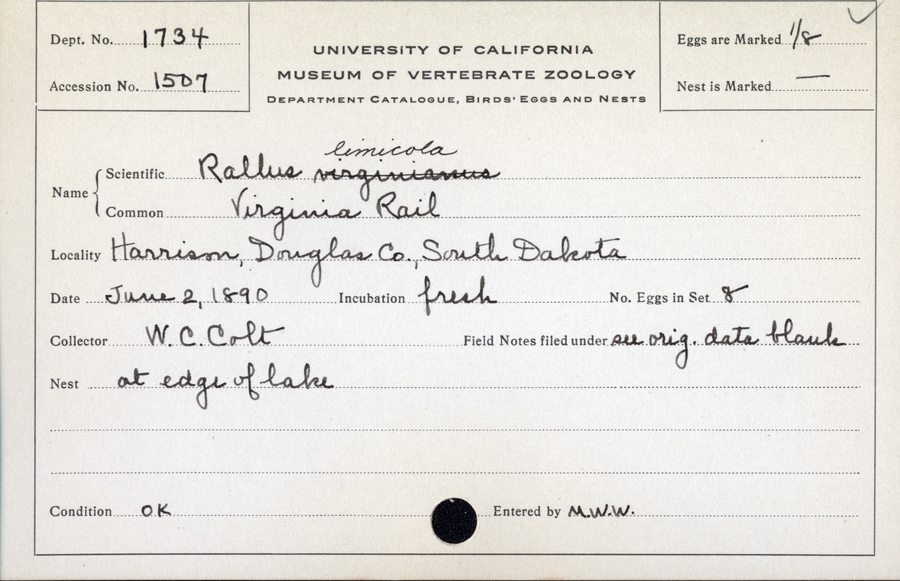 Dept. No. 1734
Accession No. 1507
UNIVERSITY OF CALIFORNIA
MUSEUM OF VERTEBRATE ZOOLOGY
DEPARTMENT CATALOGUE, BIRDS' EGGS AND NESTS
Eggs are Marked 1/8
Nest is Marked —
limicola
Name { Scientific Rallus virginianus
Common Virginia Rail
Locality Harrison, Douglas Co., South Dakota
Date June 2, 1890 Incubation fresh No. Eggs in Set 8
Collector W. C. Colt Field Notes filed under see orig. data blank
Nest at edge of lake
Condition OK Entered by M.W.W.